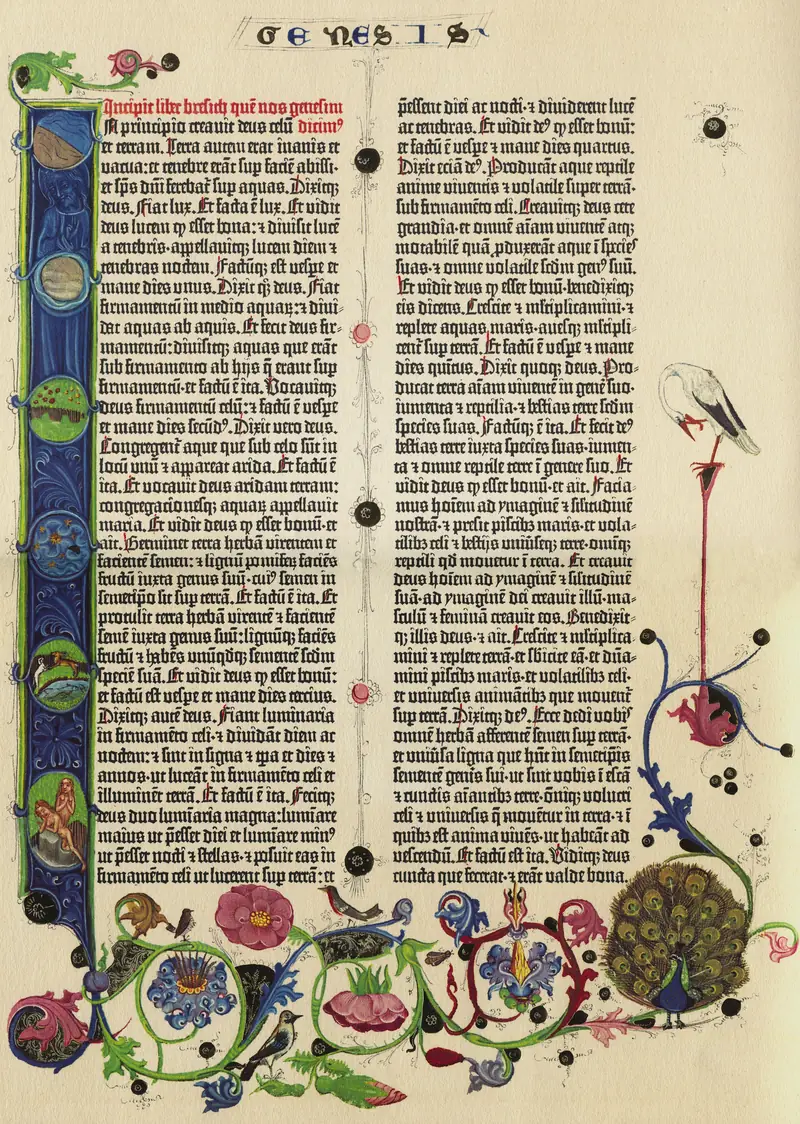 GENESIS
Incipit liber bresith quē nos genesim
In principio creauit deus celū dicimꝰ
et terram. Terra autem erat inanis et
vacua: et tenebre erāt sup faciē abissi·
et sp̄s dn̄i ferebat᷑ sup aquas. Dixitqꝫ
deus. Fiat lux. Et facta ē lux. Et vidit
deus lucem ꝙ esset bona: ⁊ diuisit lucē
a tenebris·appellauitqꝫ lucem diem ⁊
tenebras noctem. Factūqꝫ est vespe et
mane dies vnus. Dixit qꝫ deus. Fiat
firmamentū in medio aquaꝝ: ⁊ diui-
dat aquas ab aquis. Et fecit deus fir-
mamentū: diuisitqꝫ aquas que erāt
sub firmamento ab hijs q̄ erant sup
firmamentū·et factū ē ita. Vocauitqꝫ
deus firmamentū celū: ⁊ factū ē vespe
et mane dies secūdꝰ. Dixit vero deus.
Congregent᷑ aque que sub celo sūt in
locū vnū ⁊ appareat arida. Et factū ē
ita. Et vocauit deus aridam terram:
congregacionesqꝫ aquaꝝ appellauit
maria. Et vidit deus ꝙ esset bonū·et
ait. Germinet terra herbā virentem et
facientē semen: ⁊ lignū pomifeꝝ faciēs
fructū iuxta genus suū·cuiꝰ semen in
semetip̄o sit sup terrā. Et factū ē ita. Et
protulit terra herbā virentē ⁊ facientē
semē iuxta genus suū: lignūqꝫ faciēs
fructū ⁊ habēs vnūqdqꝫ sementē scdm
speciē suā. Et vidit deus ꝙ esset bonū:
et factū est vespe et mane dies tercius.
Dixitqꝫ autē deus. Fiant luminaria
in firmamēto celi·⁊ diuidāt diem ac
noctem: ⁊ sint in signa ⁊ tp̄a et dies ⁊
annos·ut luceāt in firmamēto celi et
illuminēt terrā. Et factū ē ita. Fecitqꝫ
deus duo lumīaria magna: lumīare
maius ut p̄esset diei et lumīare minꝰ
ut p̄esset nocti ⁊ stellas·⁊ posuit eas in
firmamēto celi ut lucerent sup terrā: et
p̄essent diei ac nocti·⁊ diuiderent lucē
ac tenebras. Et vidit deꝰ ꝙ esset bonū:
et factū ē vespe ⁊ mane dies quartus.
Dixit eciā deꝰ. Producāt aque reptile
anime viuentis ⁊ volatile super terrā·
sub firmamēto celi. Creauitqꝫ deus cete
grandia·et omnē aīam viuentē atqꝫ
motabilē quā ꝓduxerāt aque ī species
suas·⁊ omne volatile scdm genꝰ suū.
Et vidit deus ꝙ esset bonū·benedixitqꝫ
eis dicens. Crescite ⁊ mltiplicamini·⁊
replete aquas maris·auesqꝫ mltipli-
cent᷑ sup terrā. Et factū ē vespe ⁊ mane
dies quītus. Dixit quoqꝫ deus. Pro-
ducat terra aīam viuentē in genē suo·
iumenta ⁊ reptilia·⁊ bestias terre scdm
species suas. Factūqꝫ ē ita. Et fecit deꝰ
bestias terre iuxta species suas·iumen-
ta ⁊ omne reptile terre ī genere suo. Et
vidit deus ꝙ esset bonū·et ait. Facia-
mus hoīem ad ymaginē ⁊ silitudinē
nostrā·⁊ presit piscibꝫ maris·et vola-
tilibꝫ celi ⁊ bestijs vniūseqꝫ terre·omīqꝫ
reptili qd mouetur ī terra. Et creauit
deus hoīem ad ymaginē ⁊ silitudinē
suā·ad ymaginē dei creauit illū·ma-
sculū ⁊ feminā creauit eos. Benedixit-
qꝫ illis deus·⁊ ait. Crescite ⁊ mltiplica-
mini ⁊ replete terrā·et sbicite eā·et dn̄a-
mini piscibꝫ maris·et volatilibꝫ celi·
et vniuersis animātibꝫ que mouent᷑
sup terrā. Dixitqꝫ deꝰ. Ecce dedi vobis
omnē herbā afferentē semen sup terrā·
et vniūsa ligna que hn̄t in semetip̄is
sementē genīs sui·ut sint vobis ī escā
⁊ cunctis aīantibꝫ terre·oīqꝫ volucri
celi ⁊ vniuersis q̄ mouētur in terra·⁊ ī
quibꝫ est anima viuēs·ut habeāt ad
vescendū. Et factū est ita. Viditqꝫ deus
cuncta que fecerat·⁊ erāt valde bona.